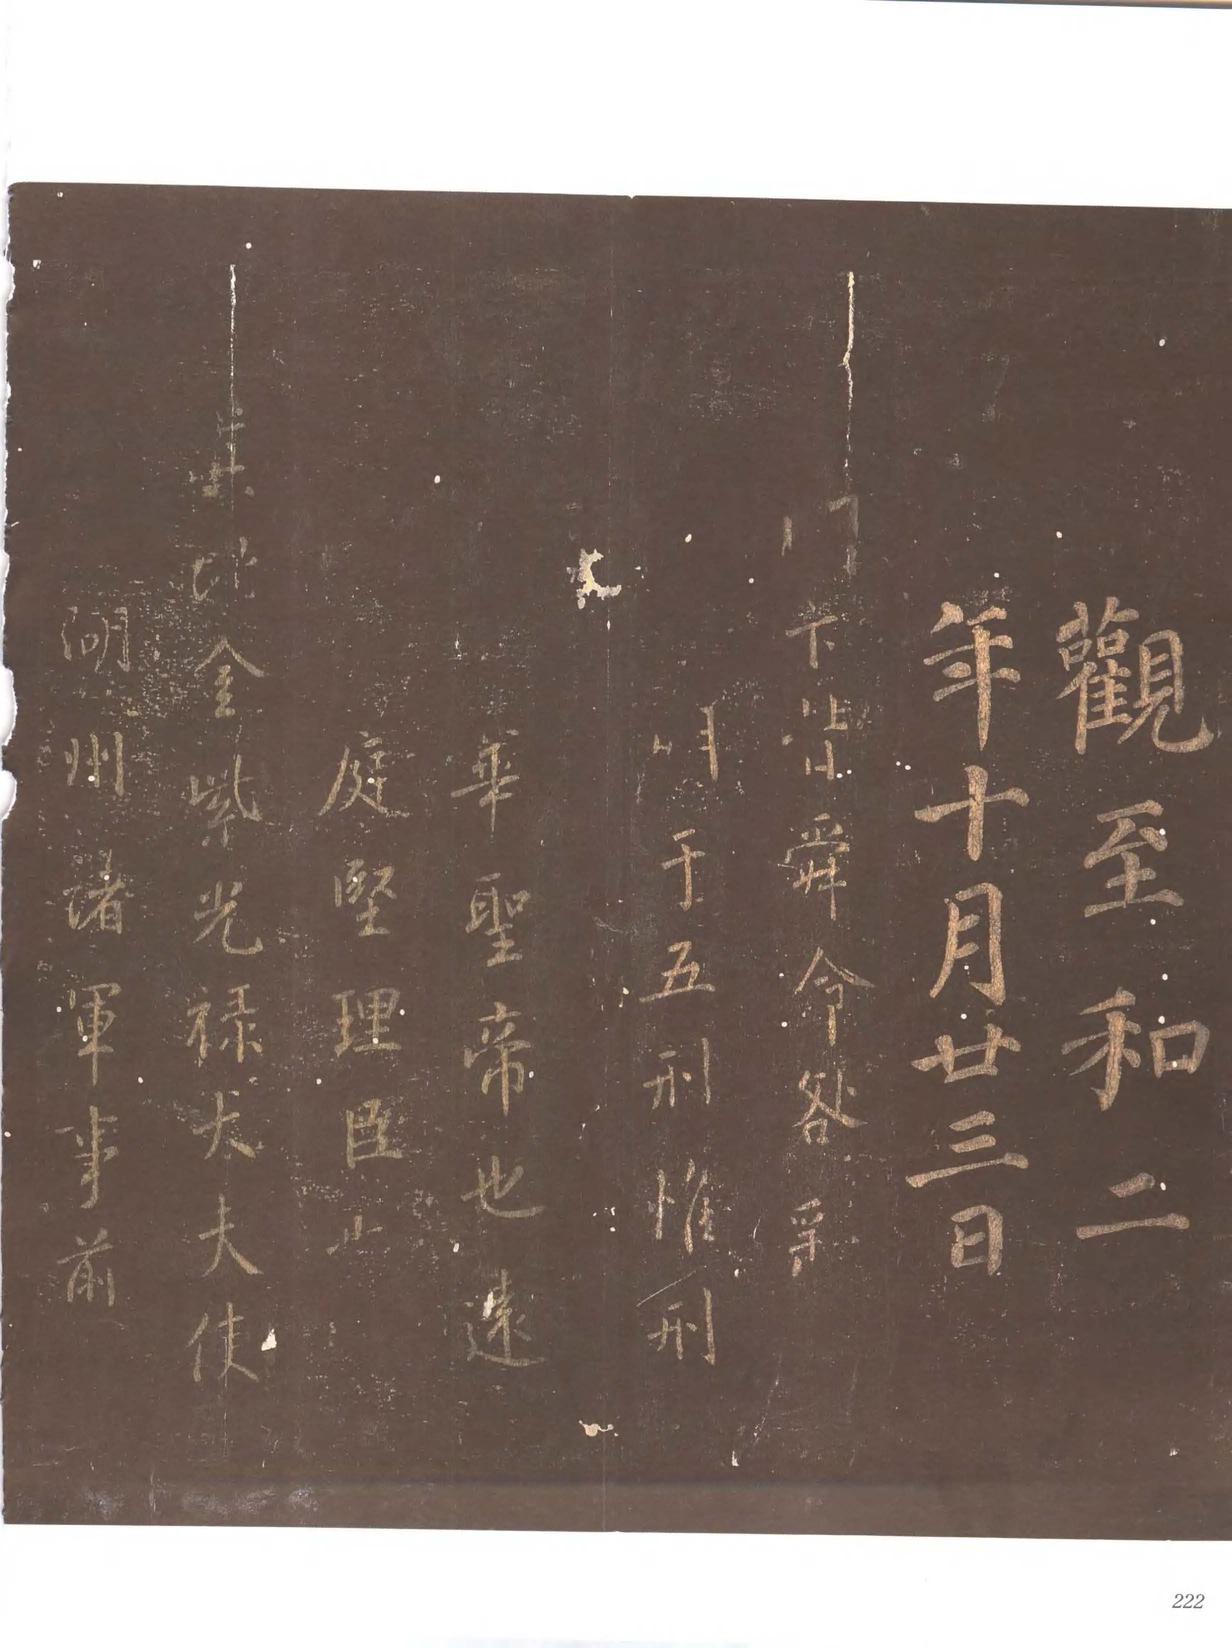 觀至和二
年十月廿三日
門下昔舜令咎繇
明于五刑惟刑
華聖帝也遠
庭堅理臣
金紫光祿大夫使
湖州諸軍事前
222